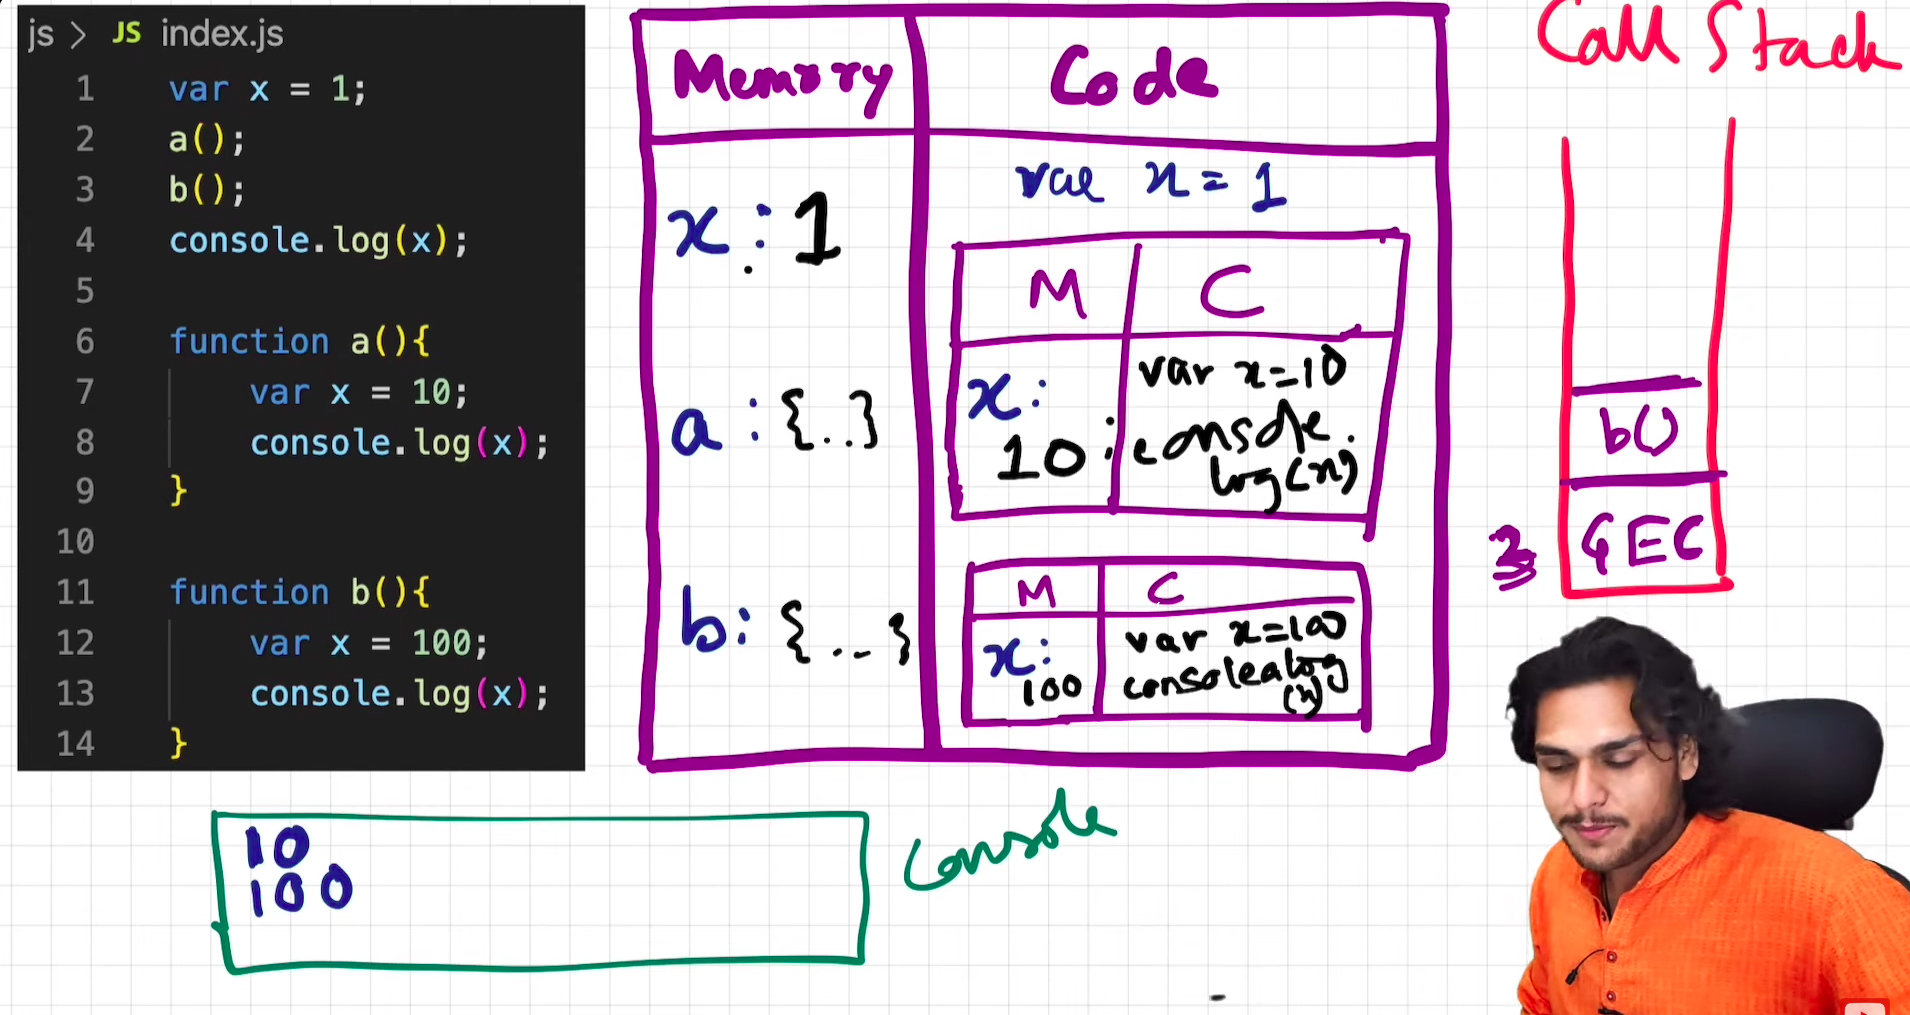 js > JS index.js
1 var x = 1;
2 a();
3 b();
4 console.log(x);
5
6 function a(){
7 var x = 10;
8 console.log(x);
9 }
10
11 function b(){
12 var x = 100;
13 console.log(x);
14 }
Memory Code
x : 1
a : {..}
b : {...}
var x = 1
M C
x:
10
var x=10
console.
log(x);
M C
x:
100
var x=100
console.log
(x)
Call Stack
b()
GEC
10
100
Console